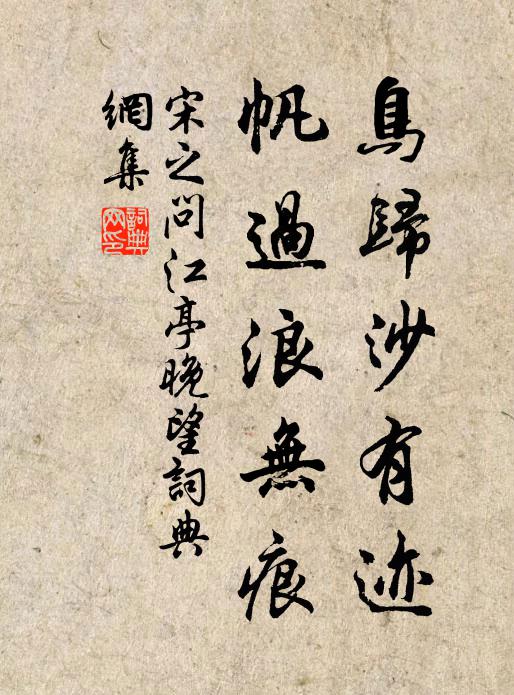 鳥歸沙有迹
帆過浪無痕
宋之问江亭晚望詞典
網集
詞典
网印